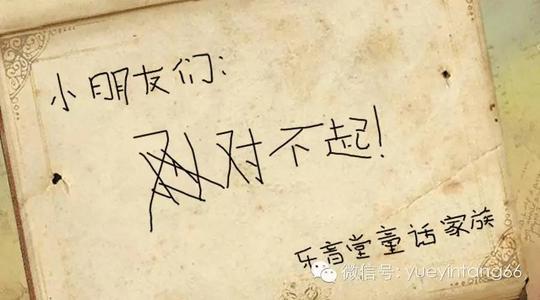 小朋友们:
对不起!
乐音堂童话家族
微信号: yueyintang66